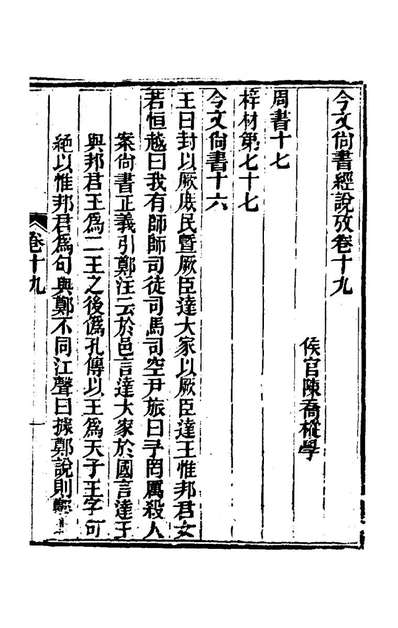 今文尚書經說攷卷十九
侯官陳喬樅學
周書十七
梓材第七十七
今文尚書十六
王曰封以厥庶民暨厥臣達大家以厥臣達王惟邦君女
若恒越曰我有師師司徒司馬司空尹旅曰予罔厲殺人
案尚書正義引鄭注云於邑言達大家於國言達于
與邦君王爲二王之後僞孔傳以王爲天子王字可
絶以惟邦君爲句與鄭不同江聲曰據鄭說則經
卷十九
一